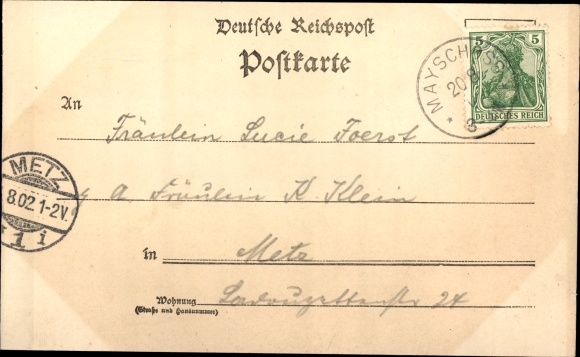 Deutsche Reichspost
Postkarte
5 5
DEUTSCHES REICH
MAYSCHOSS
20 8
* 3
An
Fräulein Lucie Foerst
METZ
8.02.1-2V.
* 1 i
a. Fräulein K. Klein
In Metz
Wohnung 24
(Straße und Hausnummer)